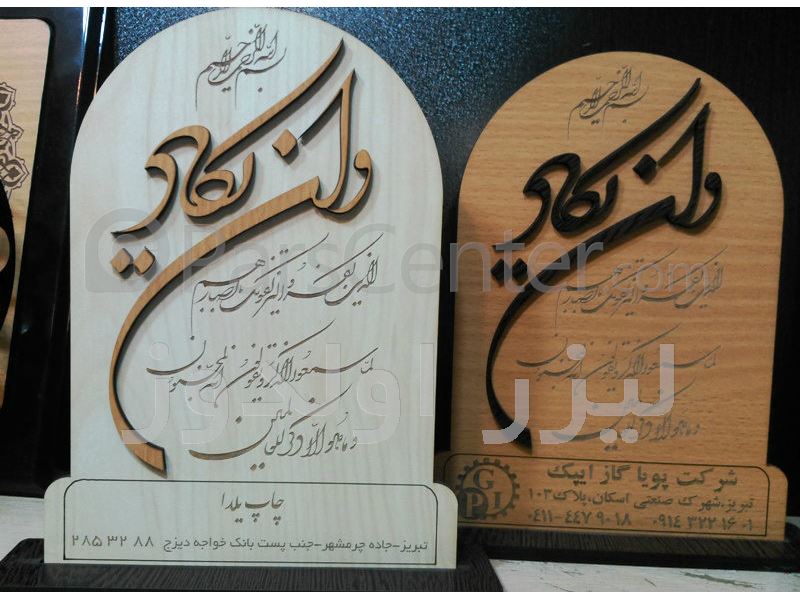 بسم الله الرحمن الرحیم
وان یکاد
الذین کفروا لیزلقونک بابصارهم
لما سمعوا الذکر و یقولون انه لمجنون
و ما هو الا ذکر للعالمین
چاپ یلدا
تبریز-جاده چرمشهر-جنب پست بانک خواجه دیزج ۸۸ ۳۲ ۲۸۵
بسم الله الرحمن الرحیم
وان یکاد
الذین کفروا لیزلقونک بابصارهم
لما سمعوا الذکر و یقولون انه لمجنون
و ما هو الا ذکر للعالمین
GPI
شرکت پویا گاز ایپک
تبریز،شهرک صنعتی اسکان،پلاک۱۰۳
۰۴۱۱-۴۴۷ ۹۰۱۸ ۰۹۱۴ ۳۲۲ ۱۶ ۰۱
ParsCenter.com
لیزر اولدوز